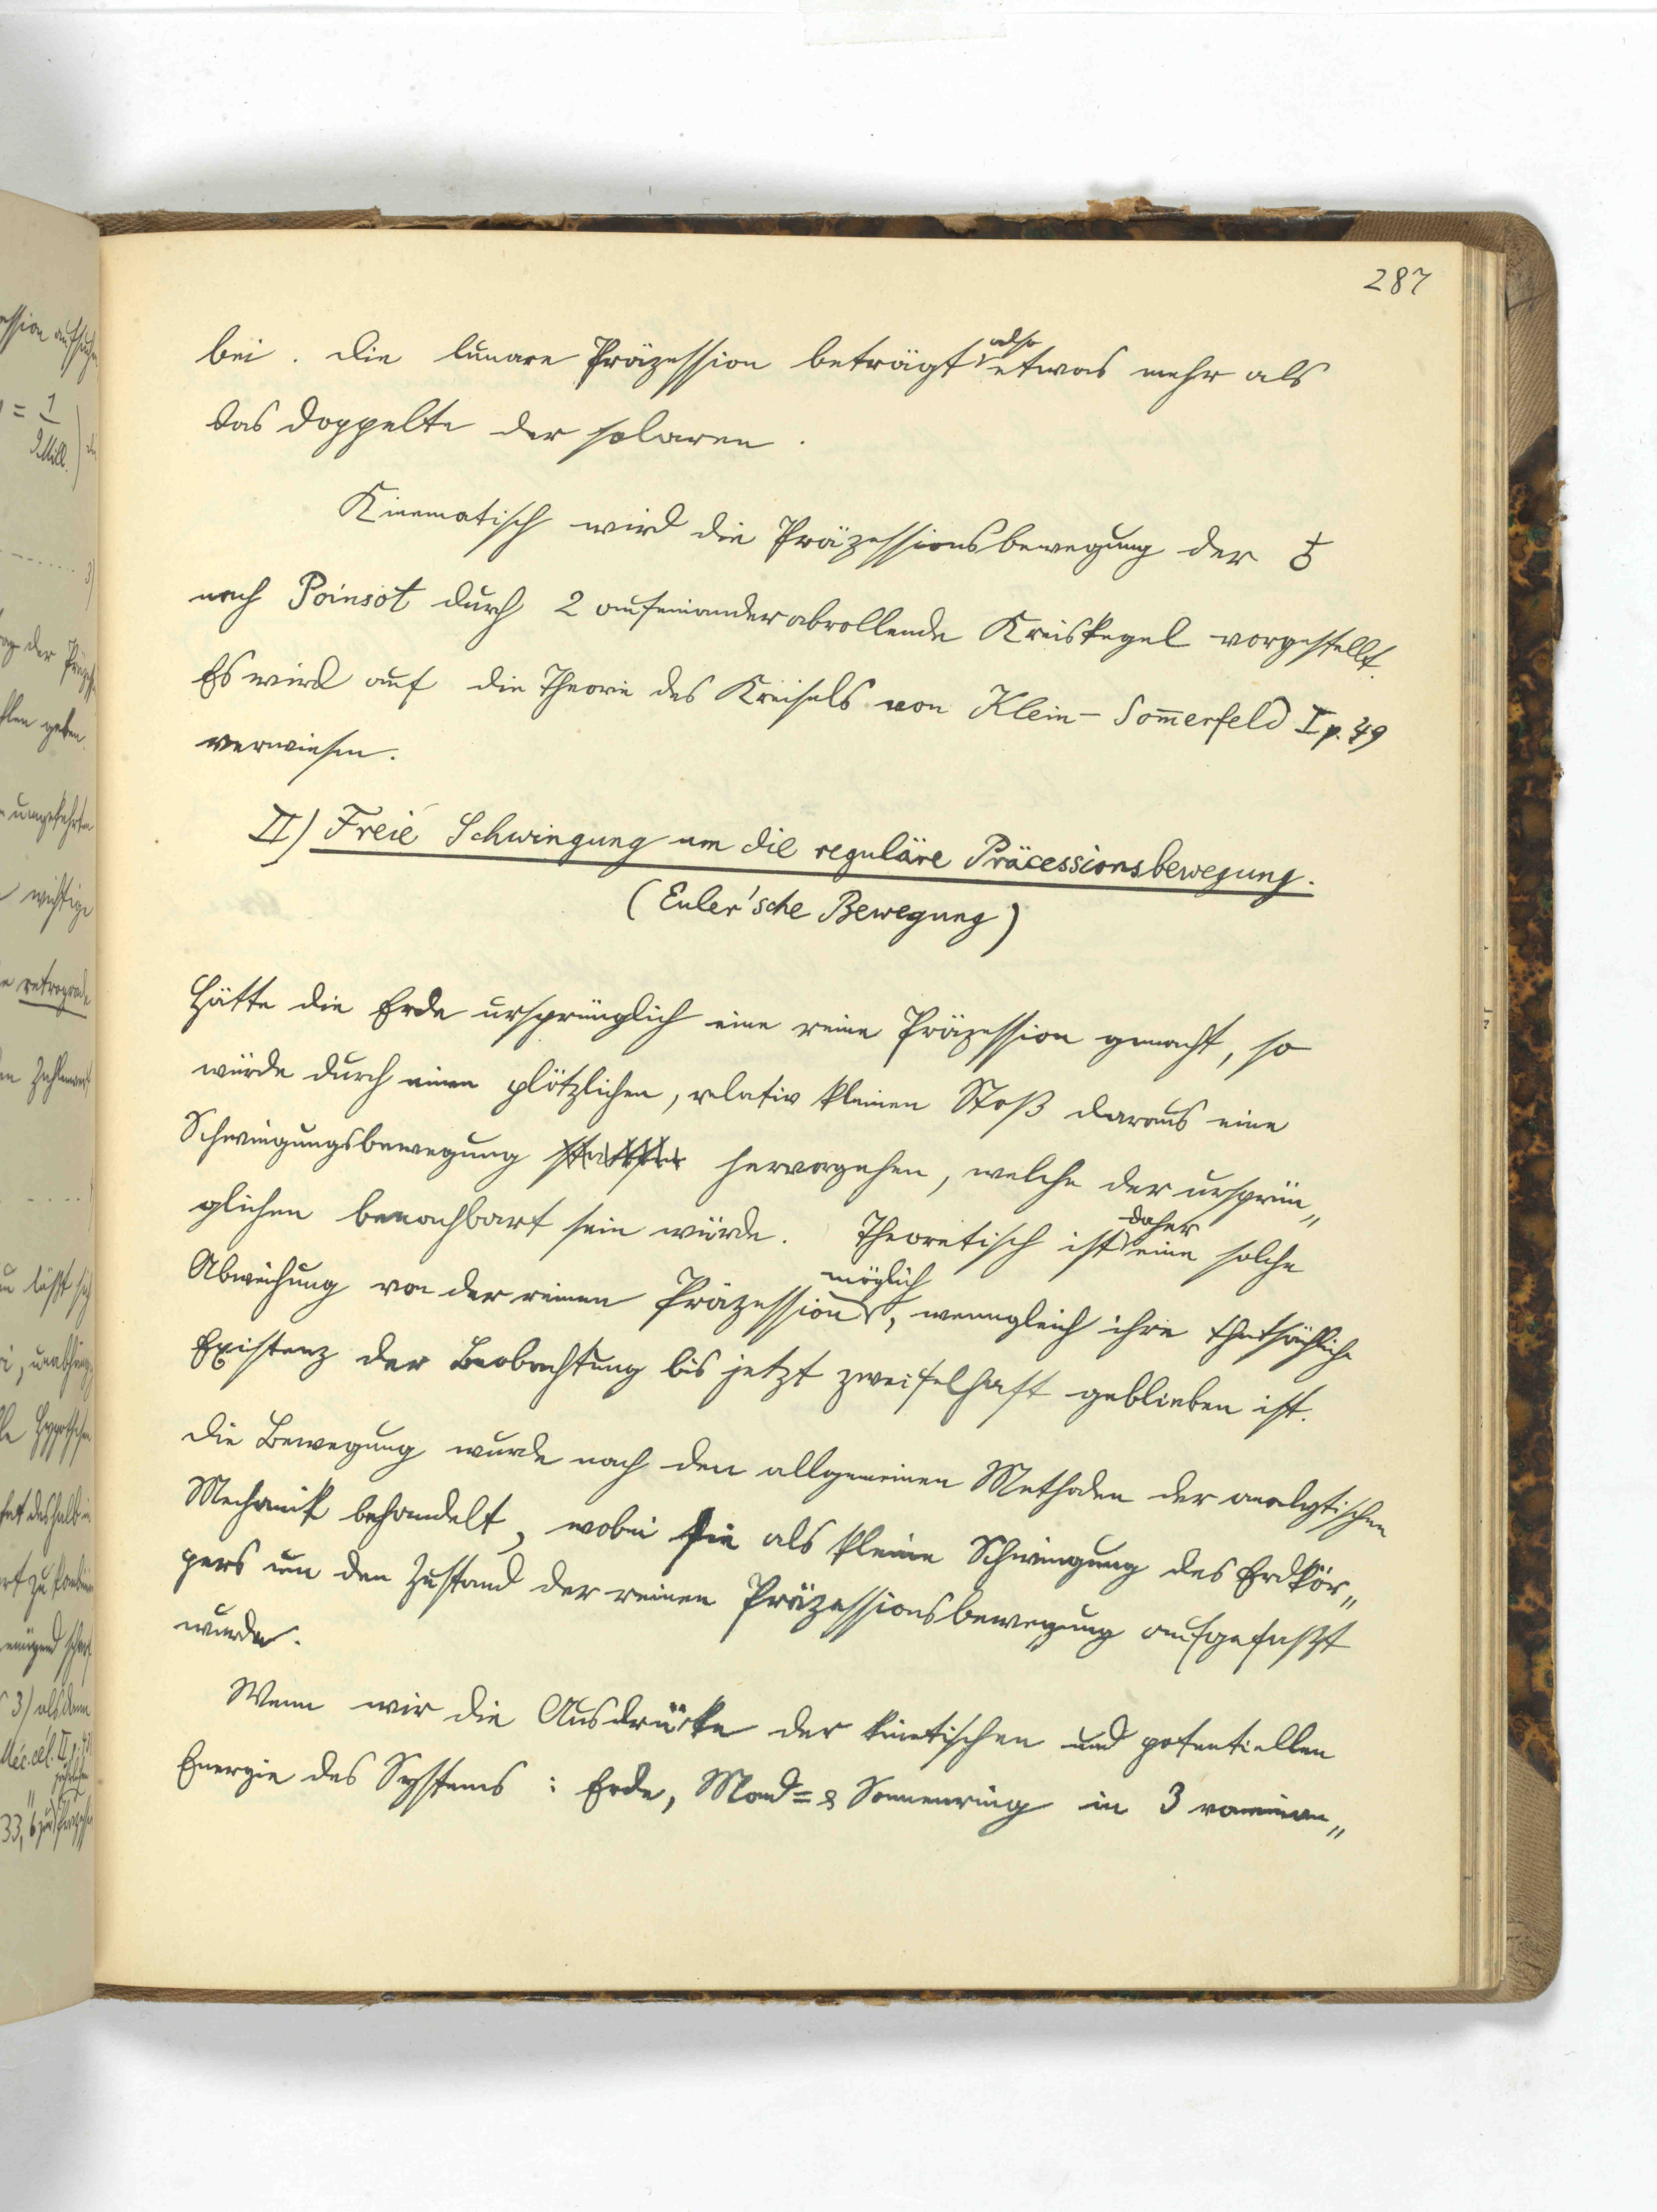 287
bei. Die lunare Präzession beträgt also etwas mehr als
das Doppelte der solaren.
Kinematisch wird die Präzessionsbewegung der ♁
nach Poinsot durch 2 aufeinander abrollende Kreiskegel vorgestellt.
Es wird auf die Theorie des Kreisels von Klein-Sommerfeld I p. 49
verwiesen.
II) Freie Schwingung um die reguläre Präcessionsbewegung.
(Euler'sche Bewegung)
Hätte die Erde ursprünglich eine reine Präzession gemacht, so
würde durch einen plötzlichen, relativ kleinen Stoß daraus eine
Schwingungsbewegung hervorgehen, welche der ursprün„
glichen benachbart sein würde. Theoretisch ist daher eine solche
Abweichung von der reinen Präzession möglich, wenngleich ihre thatsächliche
Existenz der Beobachtung bis jetzt zweifelhaft geblieben ist.
Die Bewegung wurde nach den allgemeinen Methoden der analytischen
Mechanik behandelt, wobei sie als kleine Schwingung des Erdkör„
pers um den Zustand der reinen Präzessionsbewegung aufgefaßt
wurde.
Wenn wir die Ausdrücke der kinetischen und potentiellen
Energie des Systems: Erde, Mond= & Sonnenring in 3 voneinan„